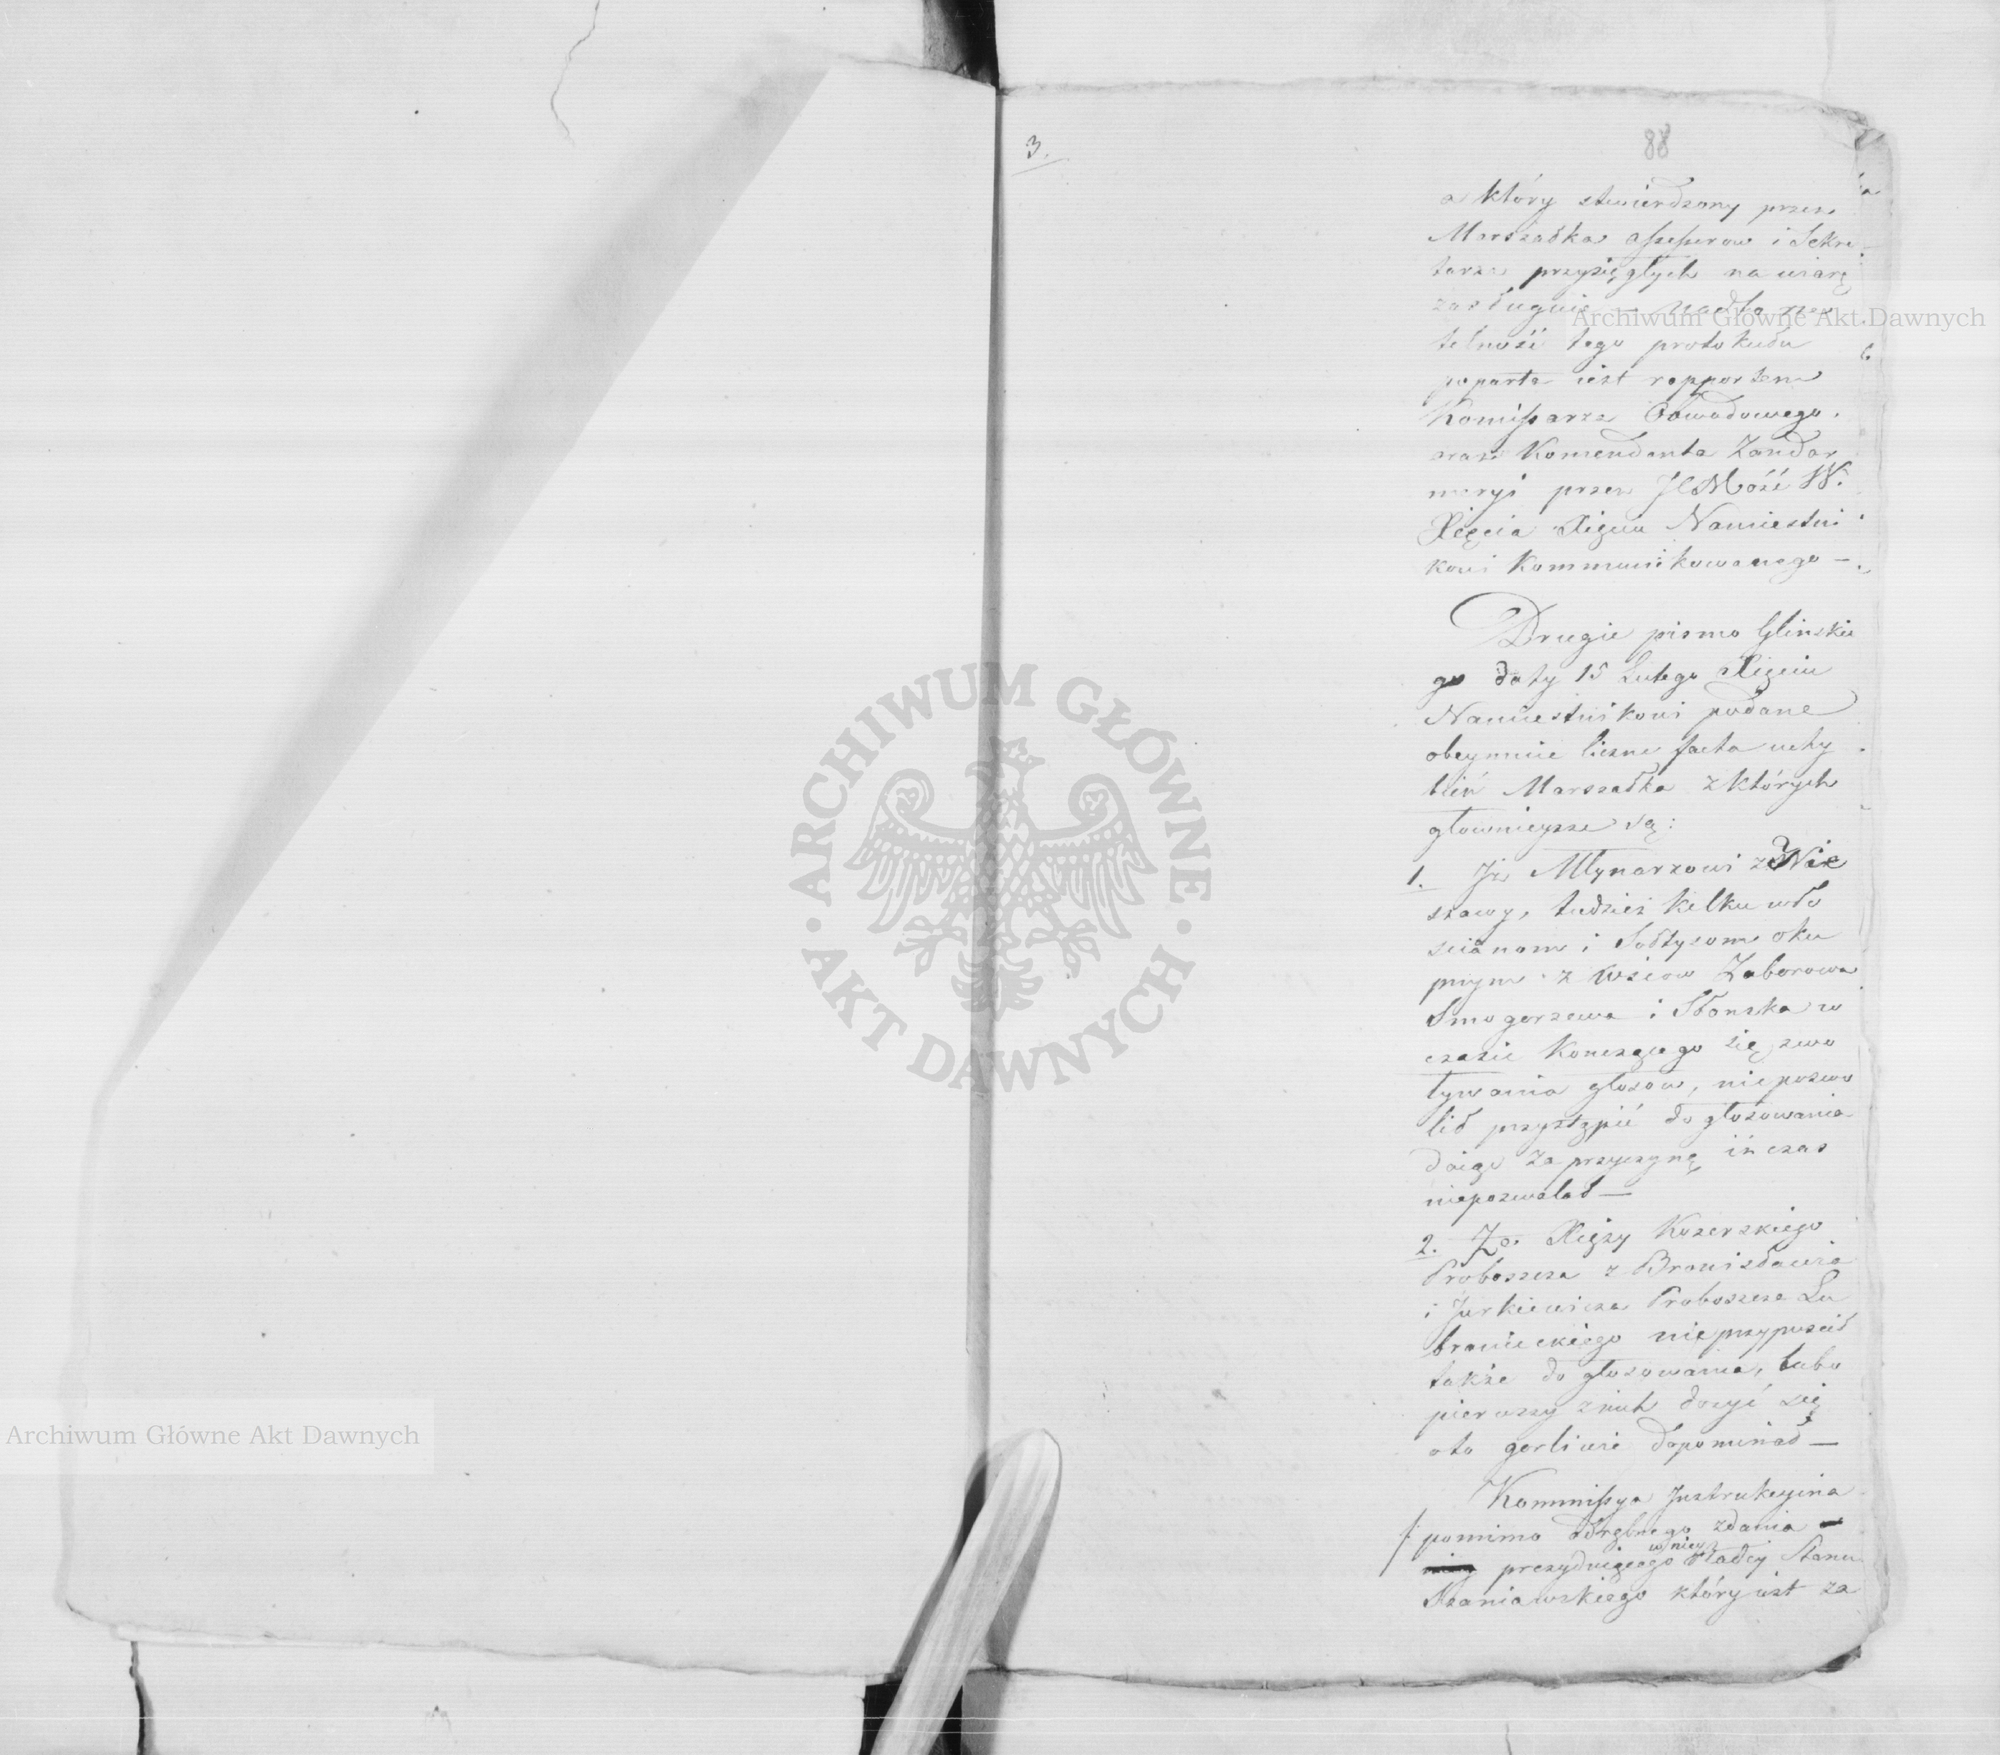 3.
88
a który stwierdzony przez
Marszałka assessorow i Sekre-
tarza przysięgłych na wiarę
zasługuie —
telność tego protokułu
poparta iest rapportem
Komissarza Obwodowego.
oraz Komendanta Zandar
meryi przez JCMość W.
Xięcia Xięciu Namiestni
kowi kommunikowanego —
Drugie pismo Glinskie
go daty 15 Lutego Xięciu
Namiestnikowi podane
obeymuie liczne facta uchy
bień Marszałka z których
głownieysze są:
1. Iż Młynarzowi z Nie
szawy, tudzież kilku wło
scianom i Sołtysom oku
pnym z wsiow Zaborowa
Smogorzewa i Słonska w
czasie konczącego się zwo
ływania głosow, niepozwo
lił przystąpić do głosowania
daiąc za przyczynę iż czas
niepozwalał —
2. Ze Xięży Kozerskiego
Proboszcza z Bronisławia
i Jurkiewicza Proboszcza Lu
branieckiego nieprzypuscił
także do głosowania, lubo
pierwszy z nich dosyć się
oto gorliwie dopominał —
Kommissya Instrukcyina
pomimo odrębnego zdania
w niey
prezyduiącego Radcy Stanu
Szaniawskiego który iest za
Archiwum Główne Akt Dawnych
ARCHIWUM GŁÓWNE · AKT DAWNYCH ·
Archiwum Główne Akt Dawnych